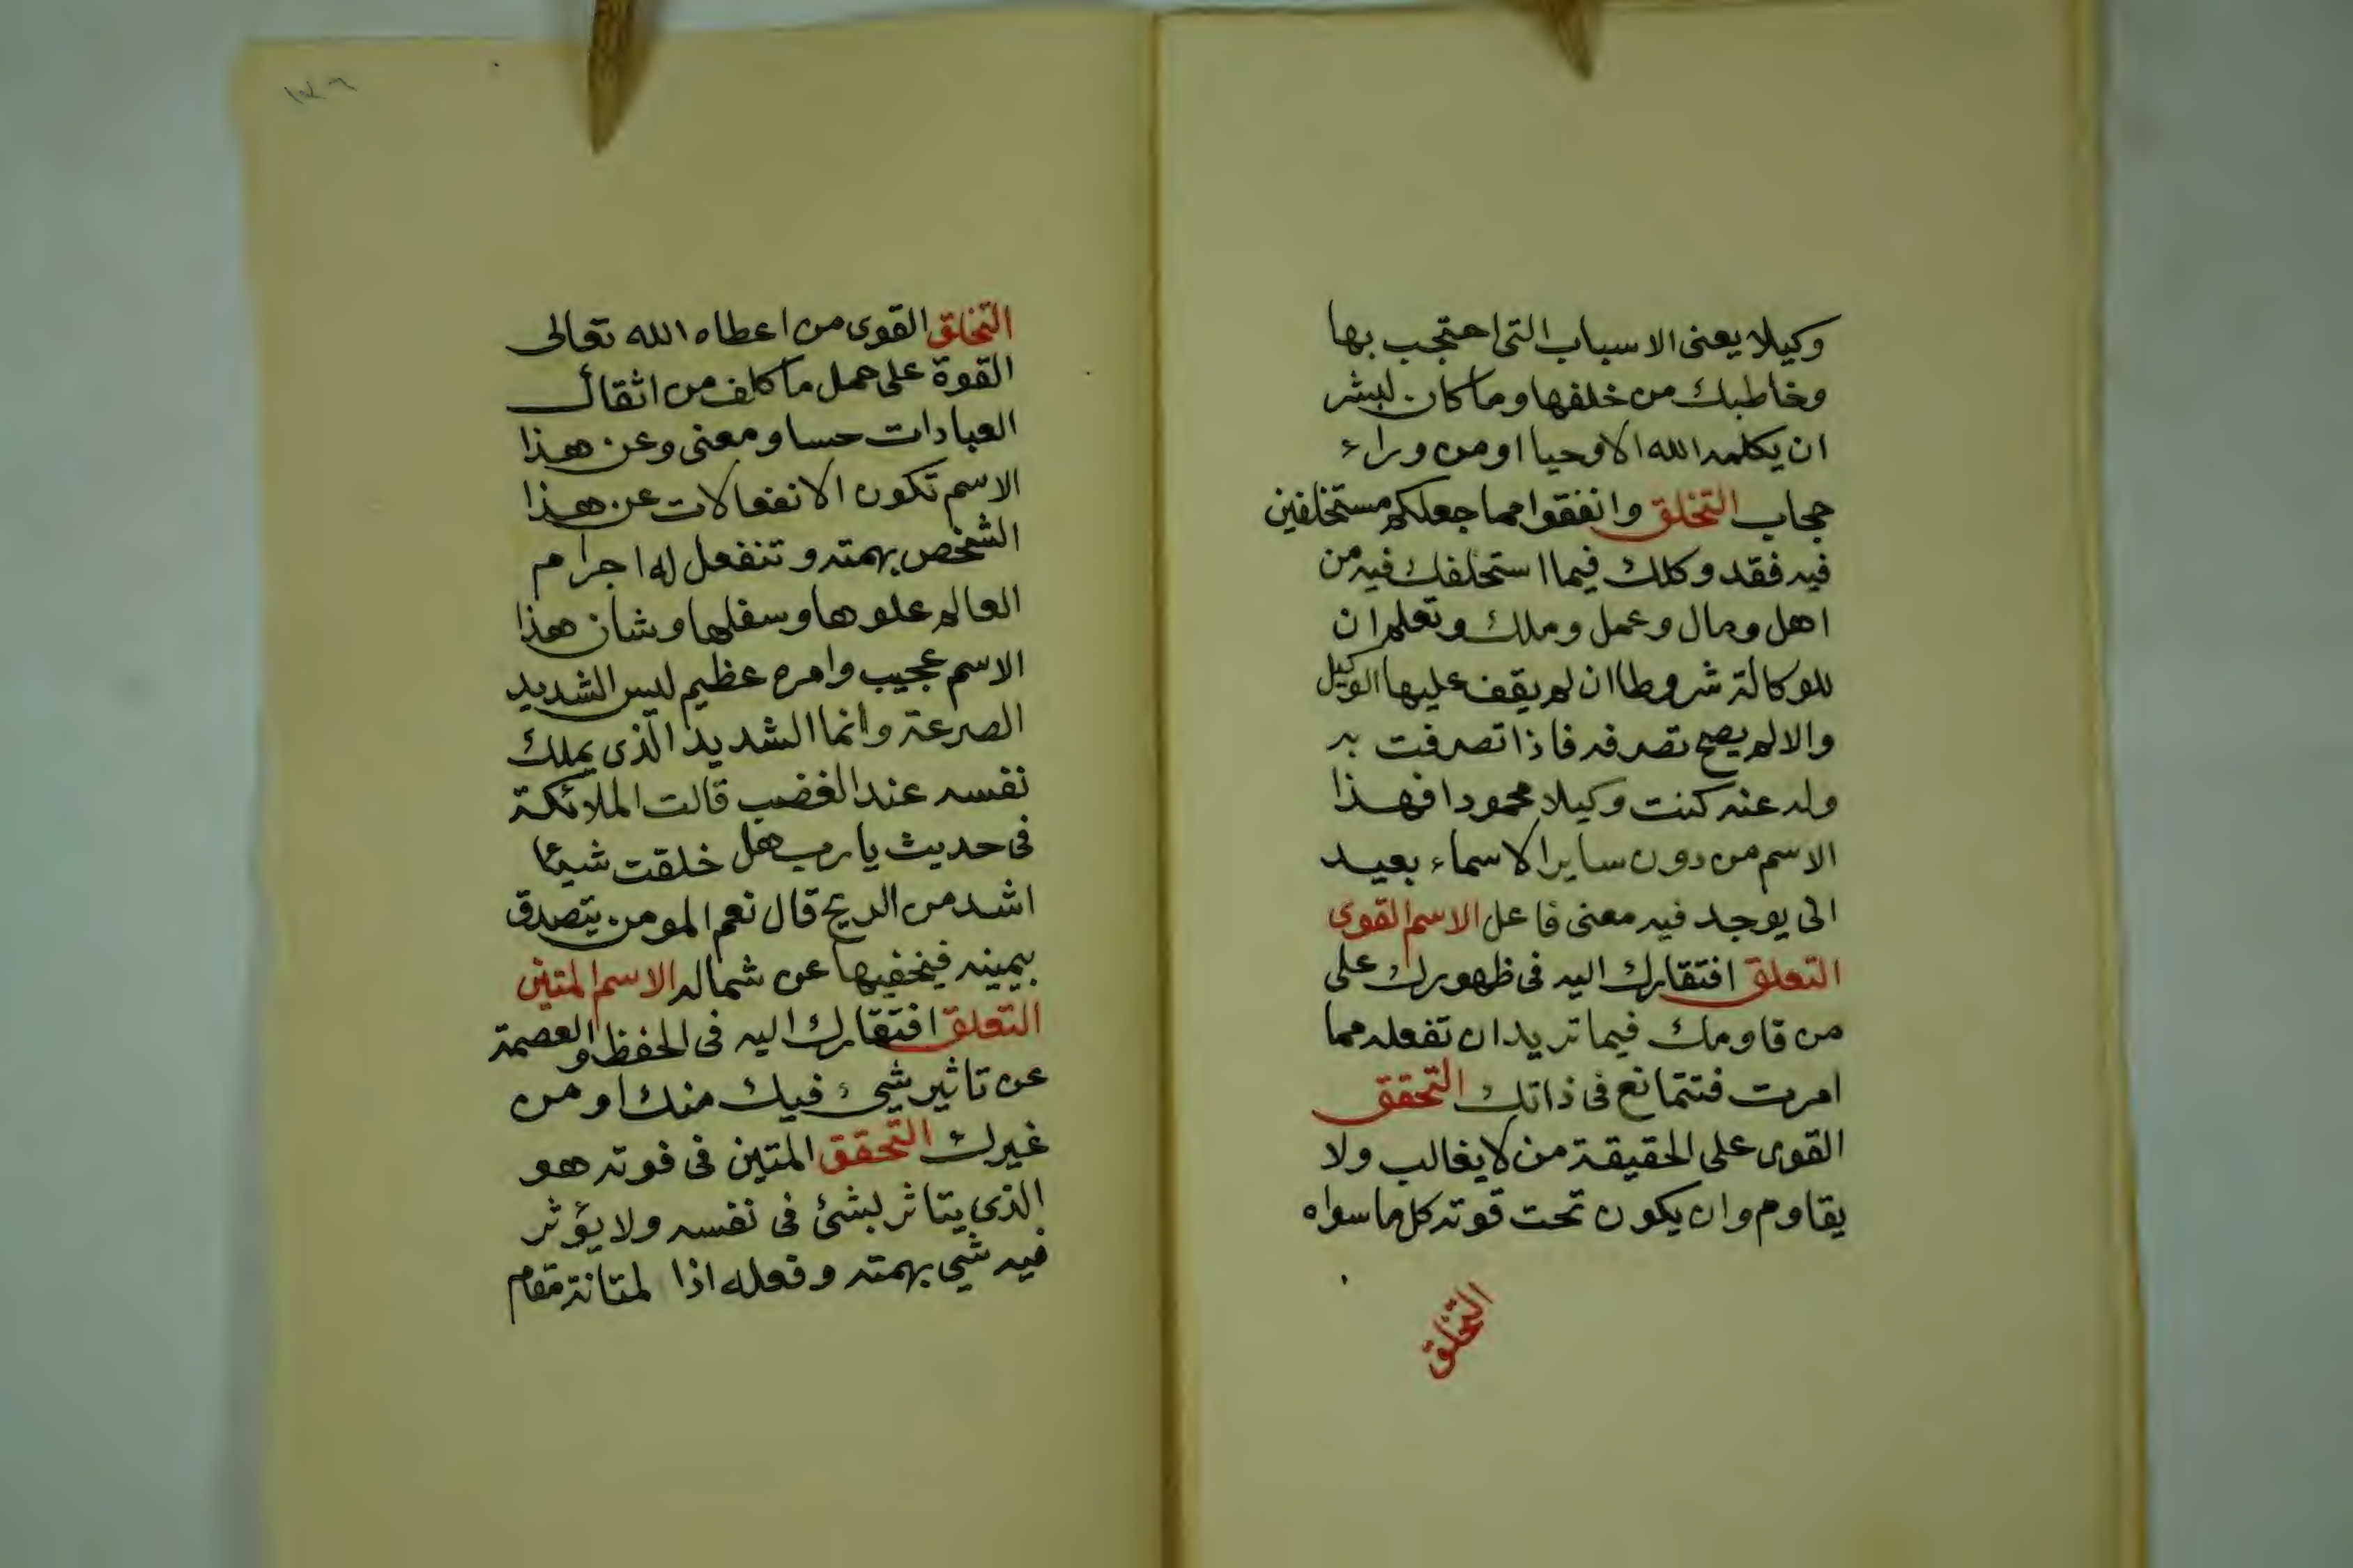 وكيلا يعنى الاسباب التى احتجب بها
وخاطبك من خلفها وما كان لبشر
ان يكلمه الله الا وحيا او من وراء
حجاب التخلق وانفقوا مما جعلكم مستخلفين
فيه فقد وكلك فيما استخلفك فيه من
اهل ومال وعمل وملك وتعلم ان
للوكالة شروطا ان لم يقف عليها الوكيل
والا لم يصح تصرفه فاذا تصرفت به
وله عنه كنت وكيلا محمودا فهذا
الاسم من دون ساير الاسماء بعيد
الى يوجد فيه معنى فاعل الاسم القوى
التعلق افتقارك اليه فى ظهورك على
من قاومك فيما تريد ان تفعله مما
امرت فتتمانع فى ذاتك التحقق
القوى على الحقيقة من لا يغالب ولا
يقاوم وان يكون تحت قوته كل ما سواه
التخلق
التخلق القوى من اعطاه الله تعالى
القوة على حمل ما كلف من اثقال
العبادات حسا ومعنى وعن هذا
الاسم تكون الانفعالات عن هذا
الشخص بهمته وتنفعل له اجرام
العالم علوها وسفلها وشان هذا
الاسم عجيب وامره عظيم ليس الشديد
الصرعة وانما الشديد الذى يملك
نفسه عند الغضب قالت الملائكة
فى حديث يا رب هل خلقت شيئا
اشد من الريح قال نعم المومن يتصدق
بيمينه فيخفيها عن شماله الاسم المتين
التعلق افتقارك اليه فى الحفظ والعصمة
عن تاثير شيئ فيك منك او من
غيرك التحقق المتين فى قوته هو
الذى يتاثر لشئ فى نفسه ولا يؤثر
فيه شيى بهمته وفعله اذا لمتانة مقام